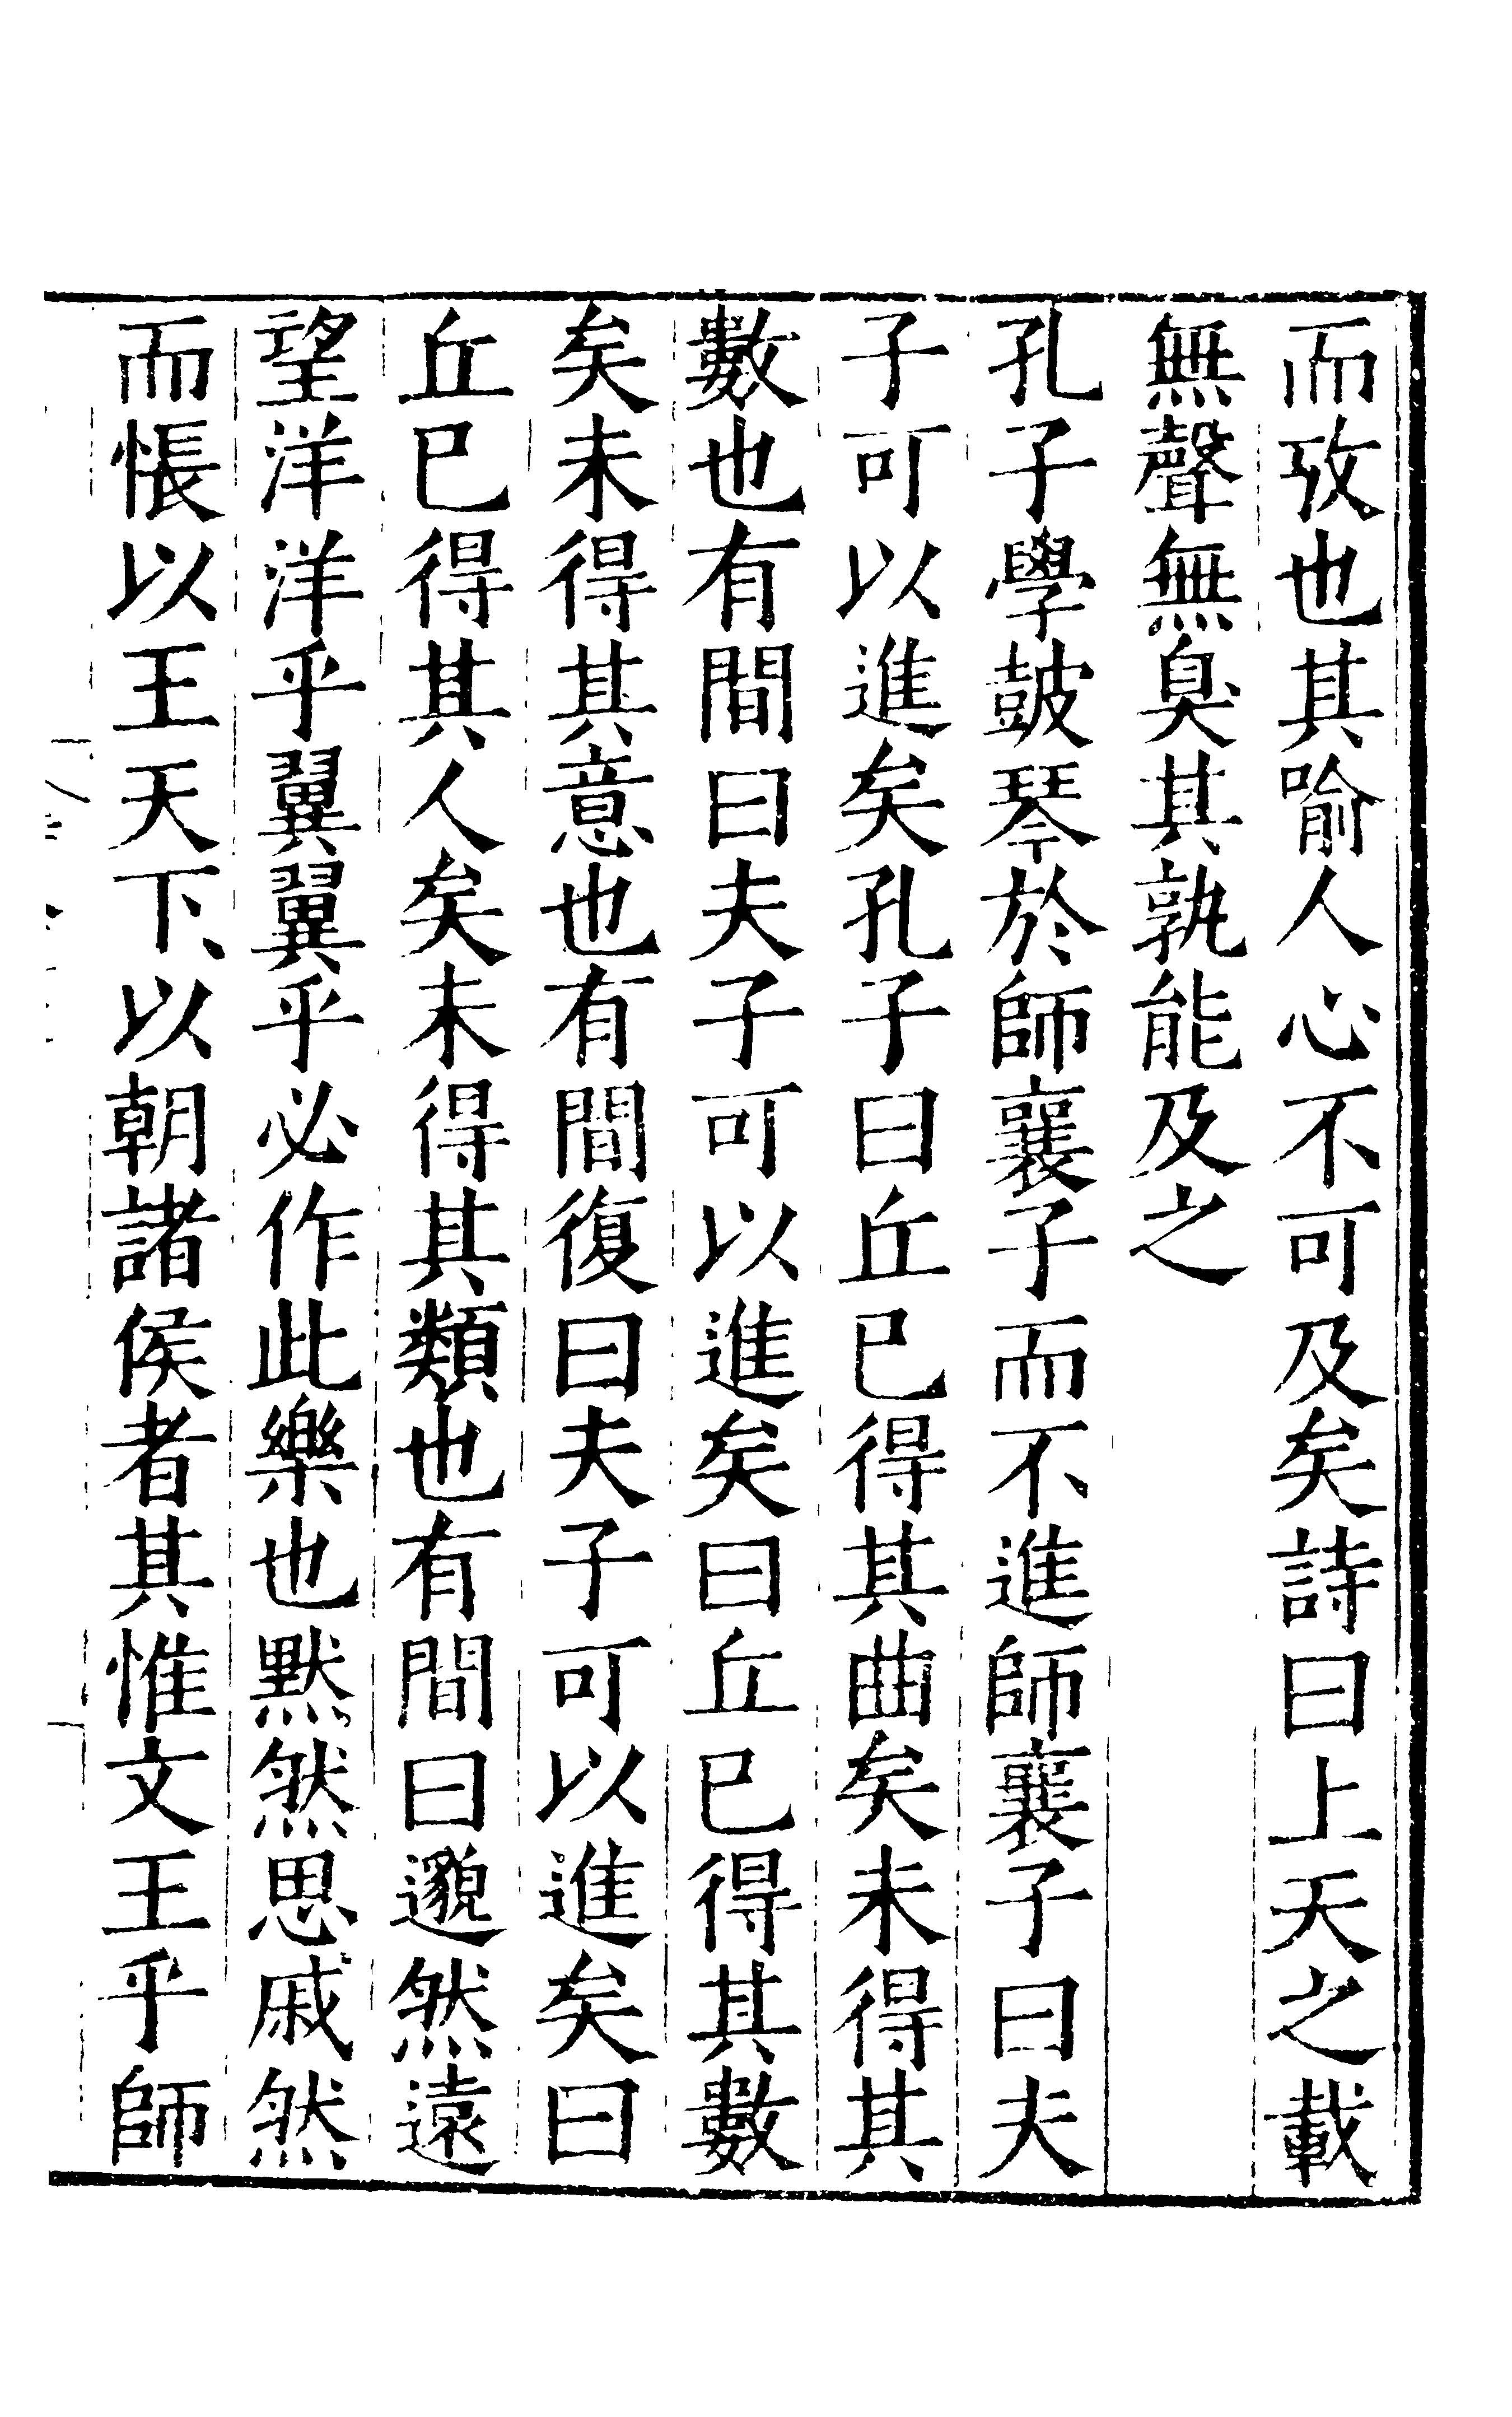 而攷也其喻人心不可及矣詩曰上天之載
無聲無臭其孰能及之
孔子學鼓琴於師襄子而不進師襄子曰夫
子可以進矣孔子曰丘已得其曲矣未得其
數也有間曰夫子可以進矣曰丘已得其數
矣未得其意也有間復曰夫子可以進矣曰
丘已得其人矣未得其類也有間曰邈然遠
望洋洋乎翼翼乎必作此樂也默然思戚然
而悵以王天下以朝諸侯者其惟文王乎師